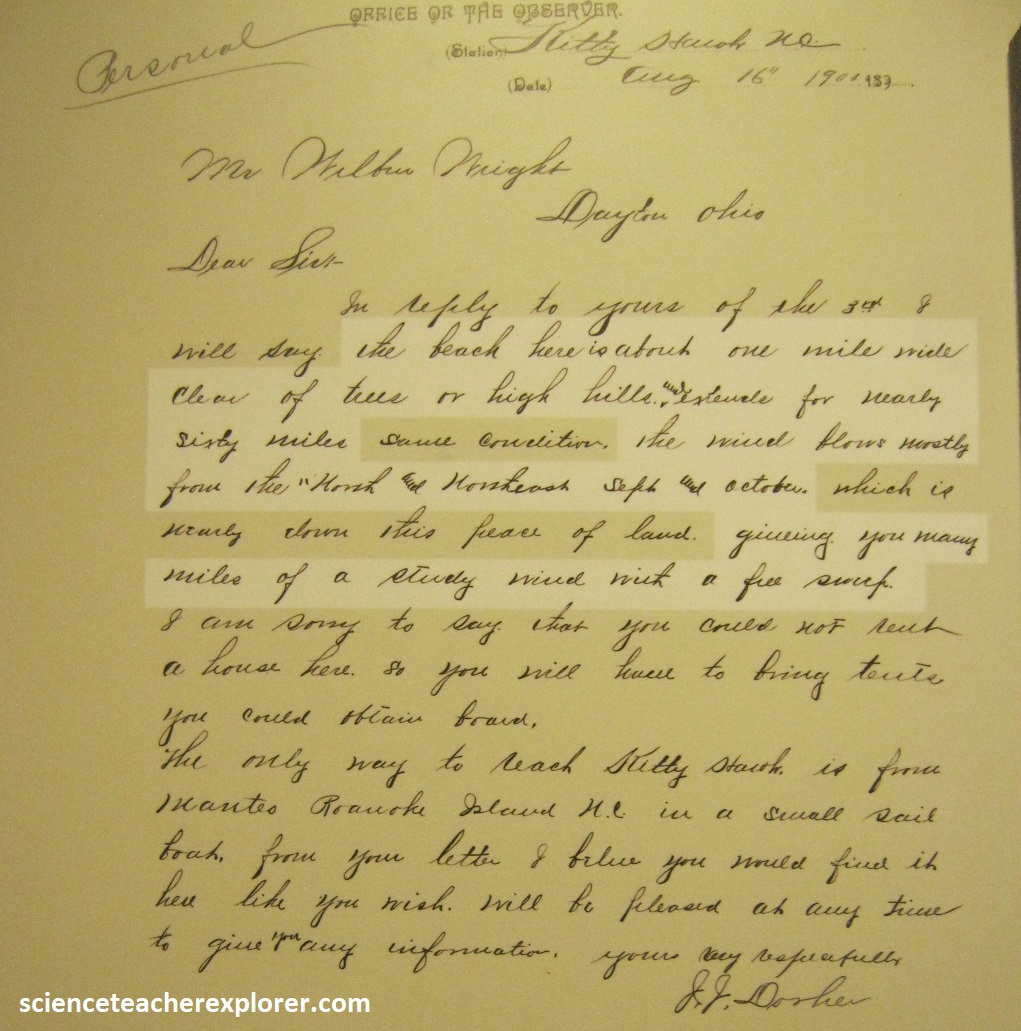 OFFICE OF THE OBSERVER.
Personal
(Station) Kitty Hawk NC
(Date) Aug 16" 1901 187
Mr Wilbur Wright
Dayton Ohio
Dear Sir:-
In reply to yours of the 3rd I
will say. the beach here is about one mile wide
clear of trees or high hills. and extends for nearly
sixty miles same condition. the wind blows mostly
from the "North and Northeast Sept and october. which is
nearly down this peace of land. giveing you many
miles of a study wind with a free sweep.
I am sorry to say that you could not rent
a house here. so you will have to bring tents
you could obtain board.
The only way to reach Kitty Hawk. is from
Manteo Roanoke Island N.C. in a small sail
boat. from your letter I belue you would find it
here like you wish. will be pleased at any time
to give you any information. yours very respecfully
J.J. Dosher
scienceteacherexplorer.com